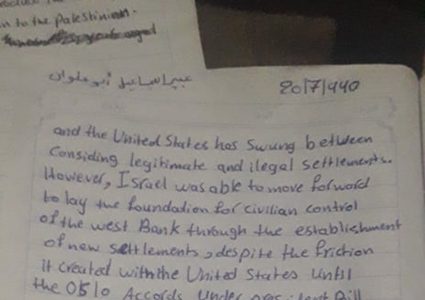 n to the palestinian.
عبير اسماعيل أبو علوان
and the United States has Swung between
Considing legitimate and ilegal settlements.
However, Israel was able to move forword
to lay the foundation for civilian control
of the west Bank through the establishment
of new settlements, despite the friction
it created with the United States until
the Oslo Accords. Under